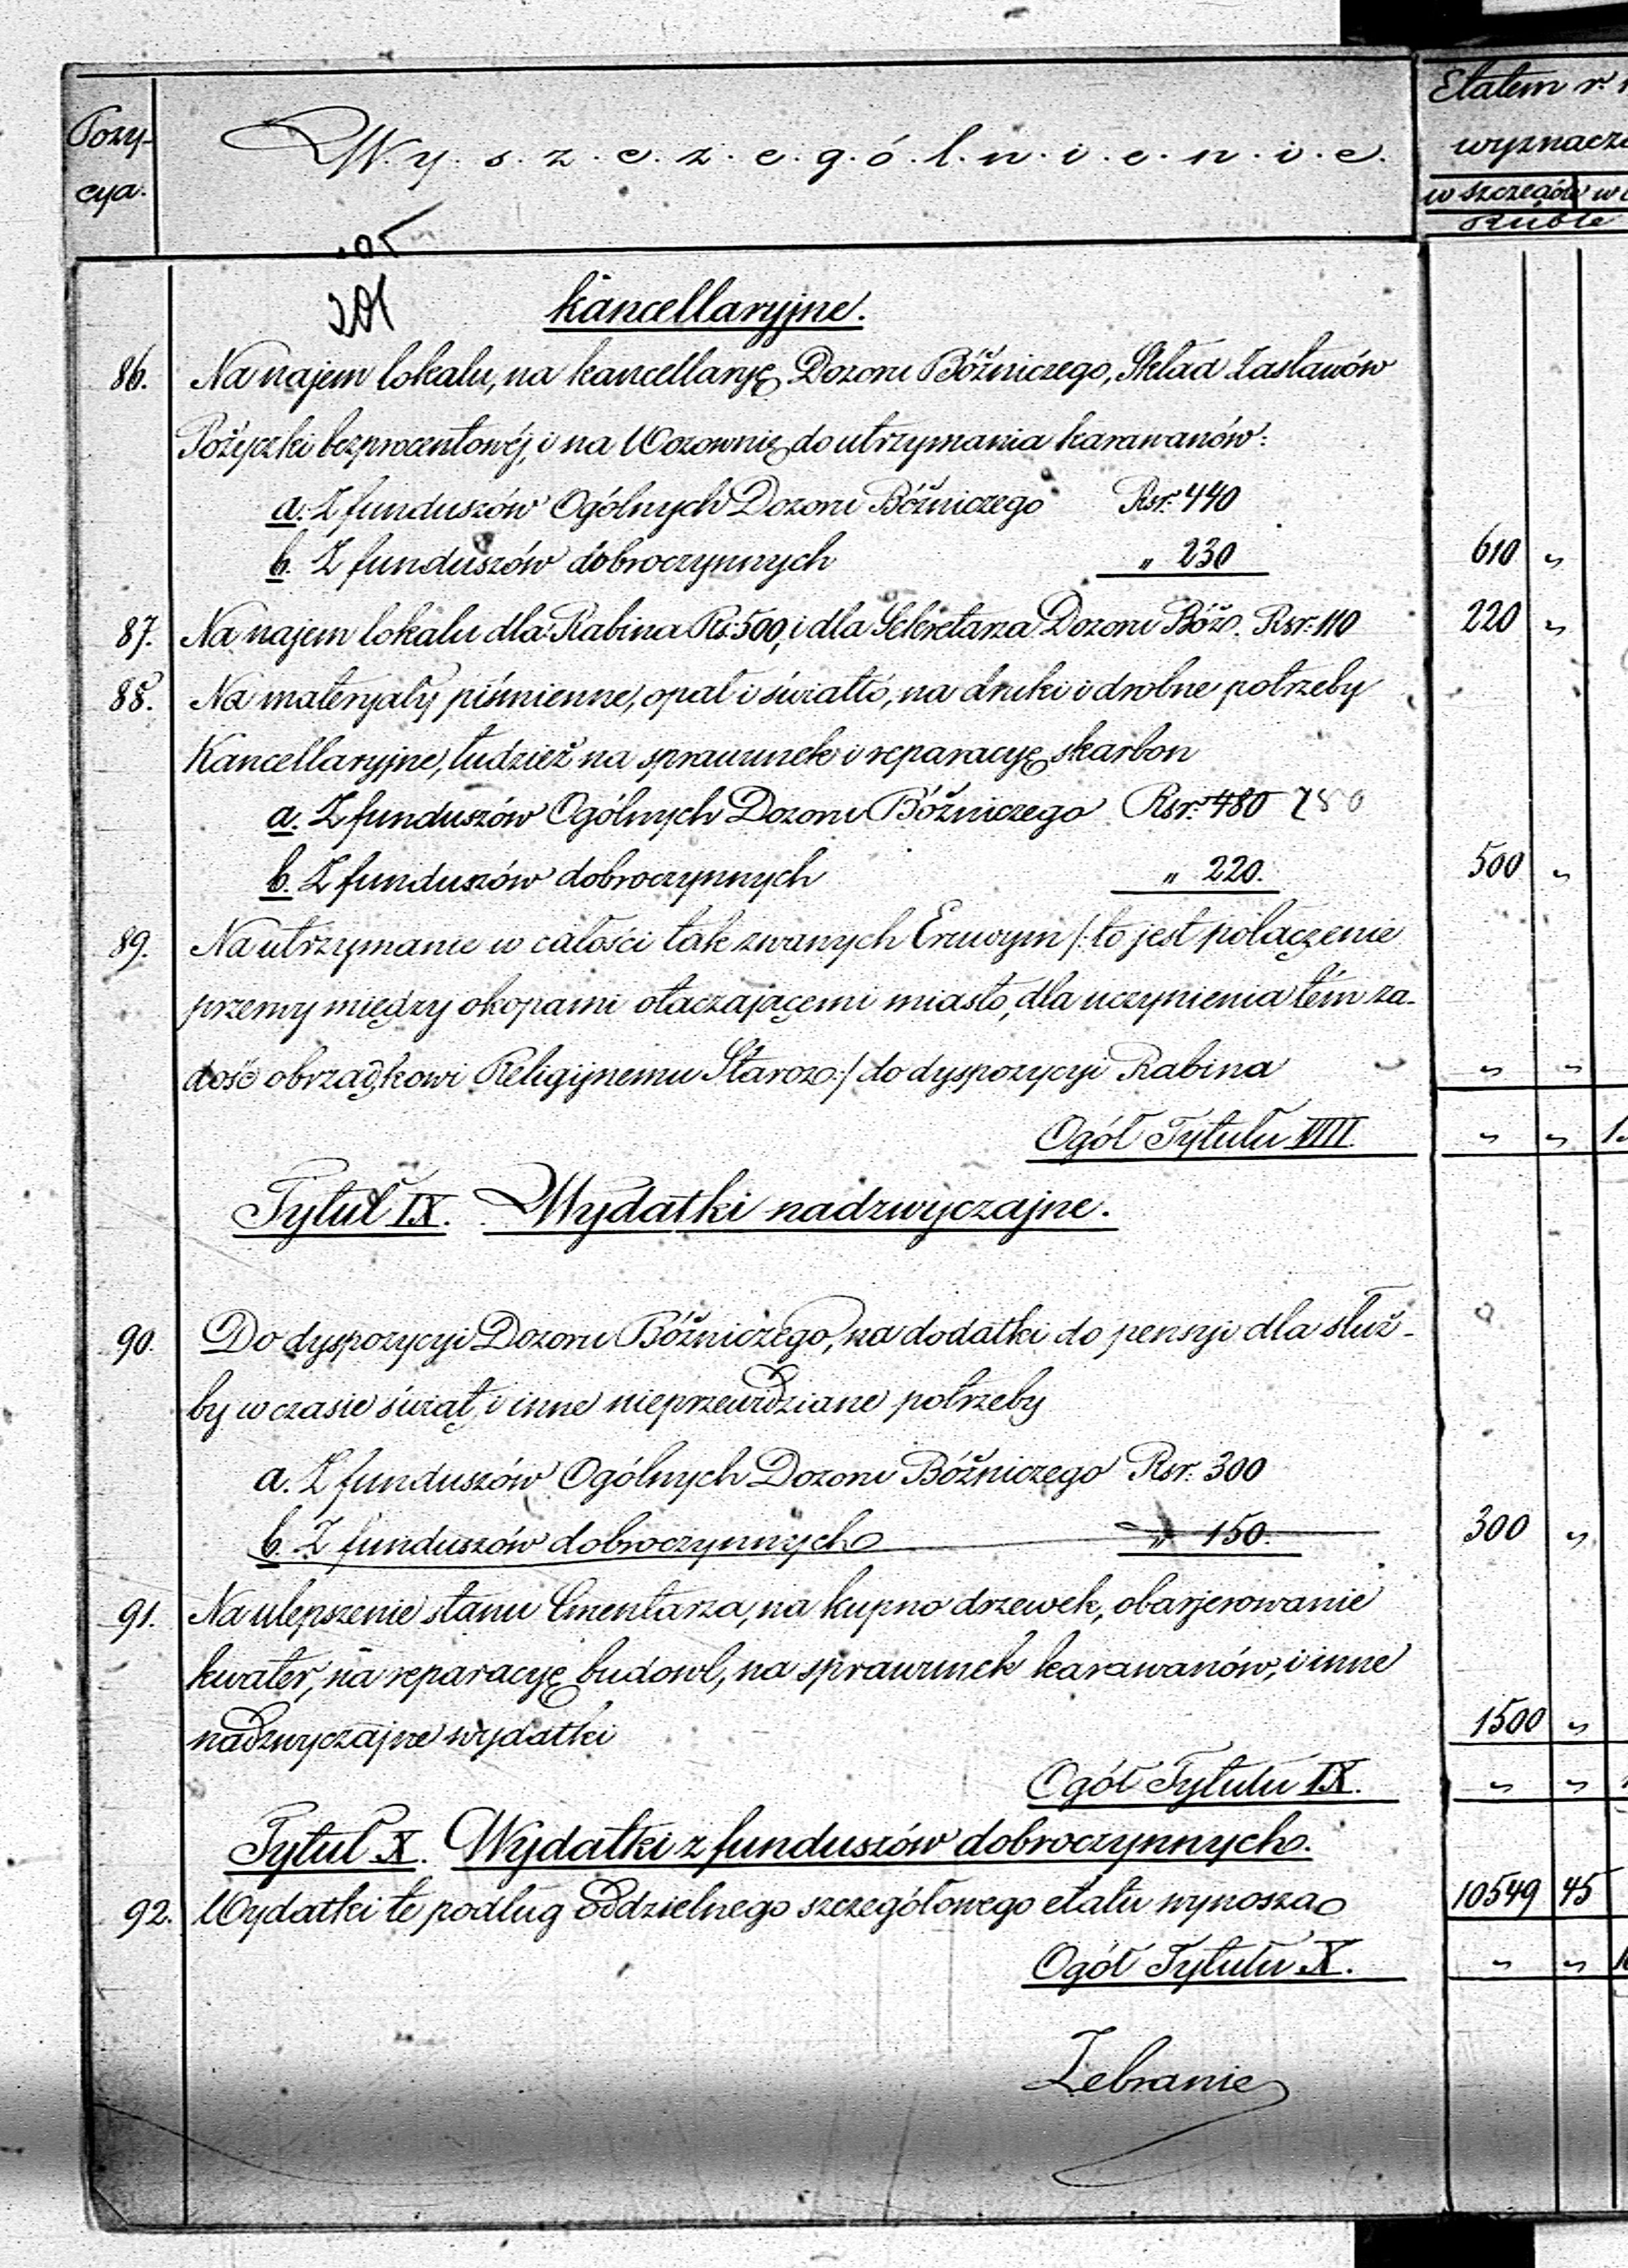 Pozy-
cya.
Wyszczególnienie.
Etatem r.
wyznacz
w szczególe w
Ruble
201
kancellaryjne.
86. Na najem lokalu, na kancellaryę Dozoru Bóżniczego, Skład Zastawów
Pożyczki bezprocentowéj, i na Wozownię do utrzymania karawanów:
a. Z funduszów Ogólnych Dozoru Bóżniczego Rsr. 440
b. Z funduszów dobroczynnych " 230 610 "
87. Na najem lokalu dla Rabina Rs. 500, i dla Sekretarza Dozoru Bóż. Rsr. 110 220 "
88. Na materyały piśmienne, opał i światło, na druki i drobne potrzeby
Kancellaryjne, tudzież na sprawunek i reparacyę skarbon
a. Z funduszów Ogólnych Dozoru Bóżniczego Rsr. 480 280
b. Z funduszów dobroczynnych " 220. 500 "
89. Na utrzymanie w całości tak zwanych Eruwym /: to jest połączenie
przerwy między okopami otaczającemi miasto, dla uczynienia tém za-
dość obrządkowi Religijnemu Staroz:/ do dyspozycyi Rabina " "
Ogół Tytułu VIII. " " 1
Tytuł IX. Wydatki nadzwyczajne.
90. Do dyspozycyi Dozoru Bóżniczego, na dodatki do pensyi dla służ-
by w czasie świąt, i inne nieprzewidziane potrzeby
a. Z funduszów Ogólnych Dozoru Bóżniczego Rsr. 300
b. Z funduszów dobroczynnych " 150. 300 "
91. Na ulepszenie stanu Cmentarza, na kupno drzewek, obarjerowanie
kwater, na reparacyę budowl, na sprawunek karawanów, i inne
nadzwyczajne wydatki 1500 "
Ogół Tytułu IX. " "
Tytuł X. Wydatki z funduszów dobroczynnych.
92. Wydatki te podług oddzielnego szczegółowego etatu wynoszą 10549 45
Ogół Tytułu X. " "
Zebranie